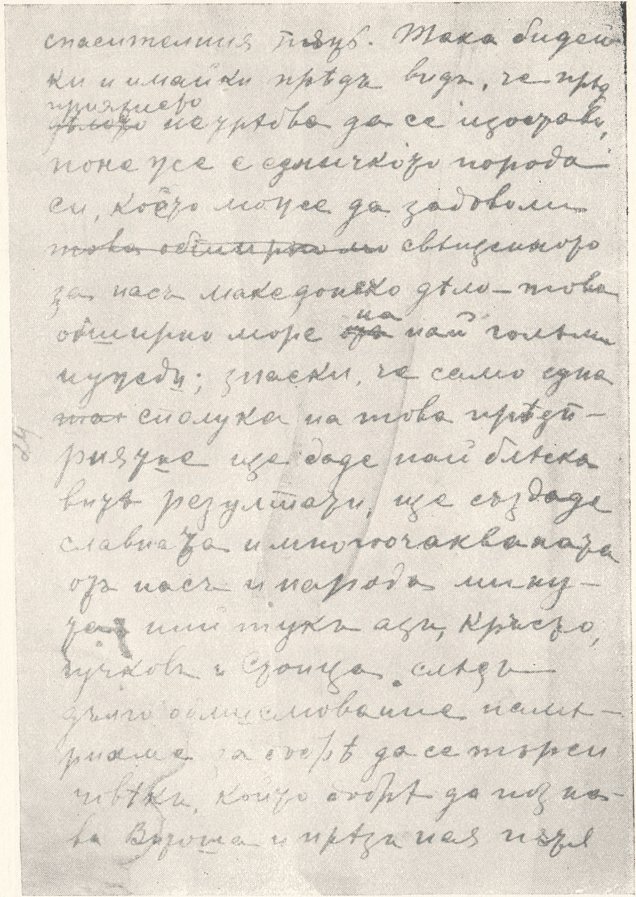 спасителния пѫть. Така бидей-
ки и имайки прѣдъ видъ, че прѣд
приятието
дѣлото не трѣбва да се изоставя,
понеже е едничкото порода
си, което може да задоволи
това обширно ми свещенното
за насъ македонско дѣло – това
обширно море отъ на най голѣми
нужди; знаейки, че само една
так сполука на това прѣдп-
риятие ще даде най блѣска
витѣ резултати, ще създаде
славната и многоочакваната
отъ насъ и народа мину-
та, ний тукъ азъ, Кръсто,
Гучковъ и Стоица слѣдъ
дълго обмислювание намѣ-
рихме за добрѣ да се търси
човѣкъ, който добрѣ да позна-
ва Вироша и прѣзъ ная пътя